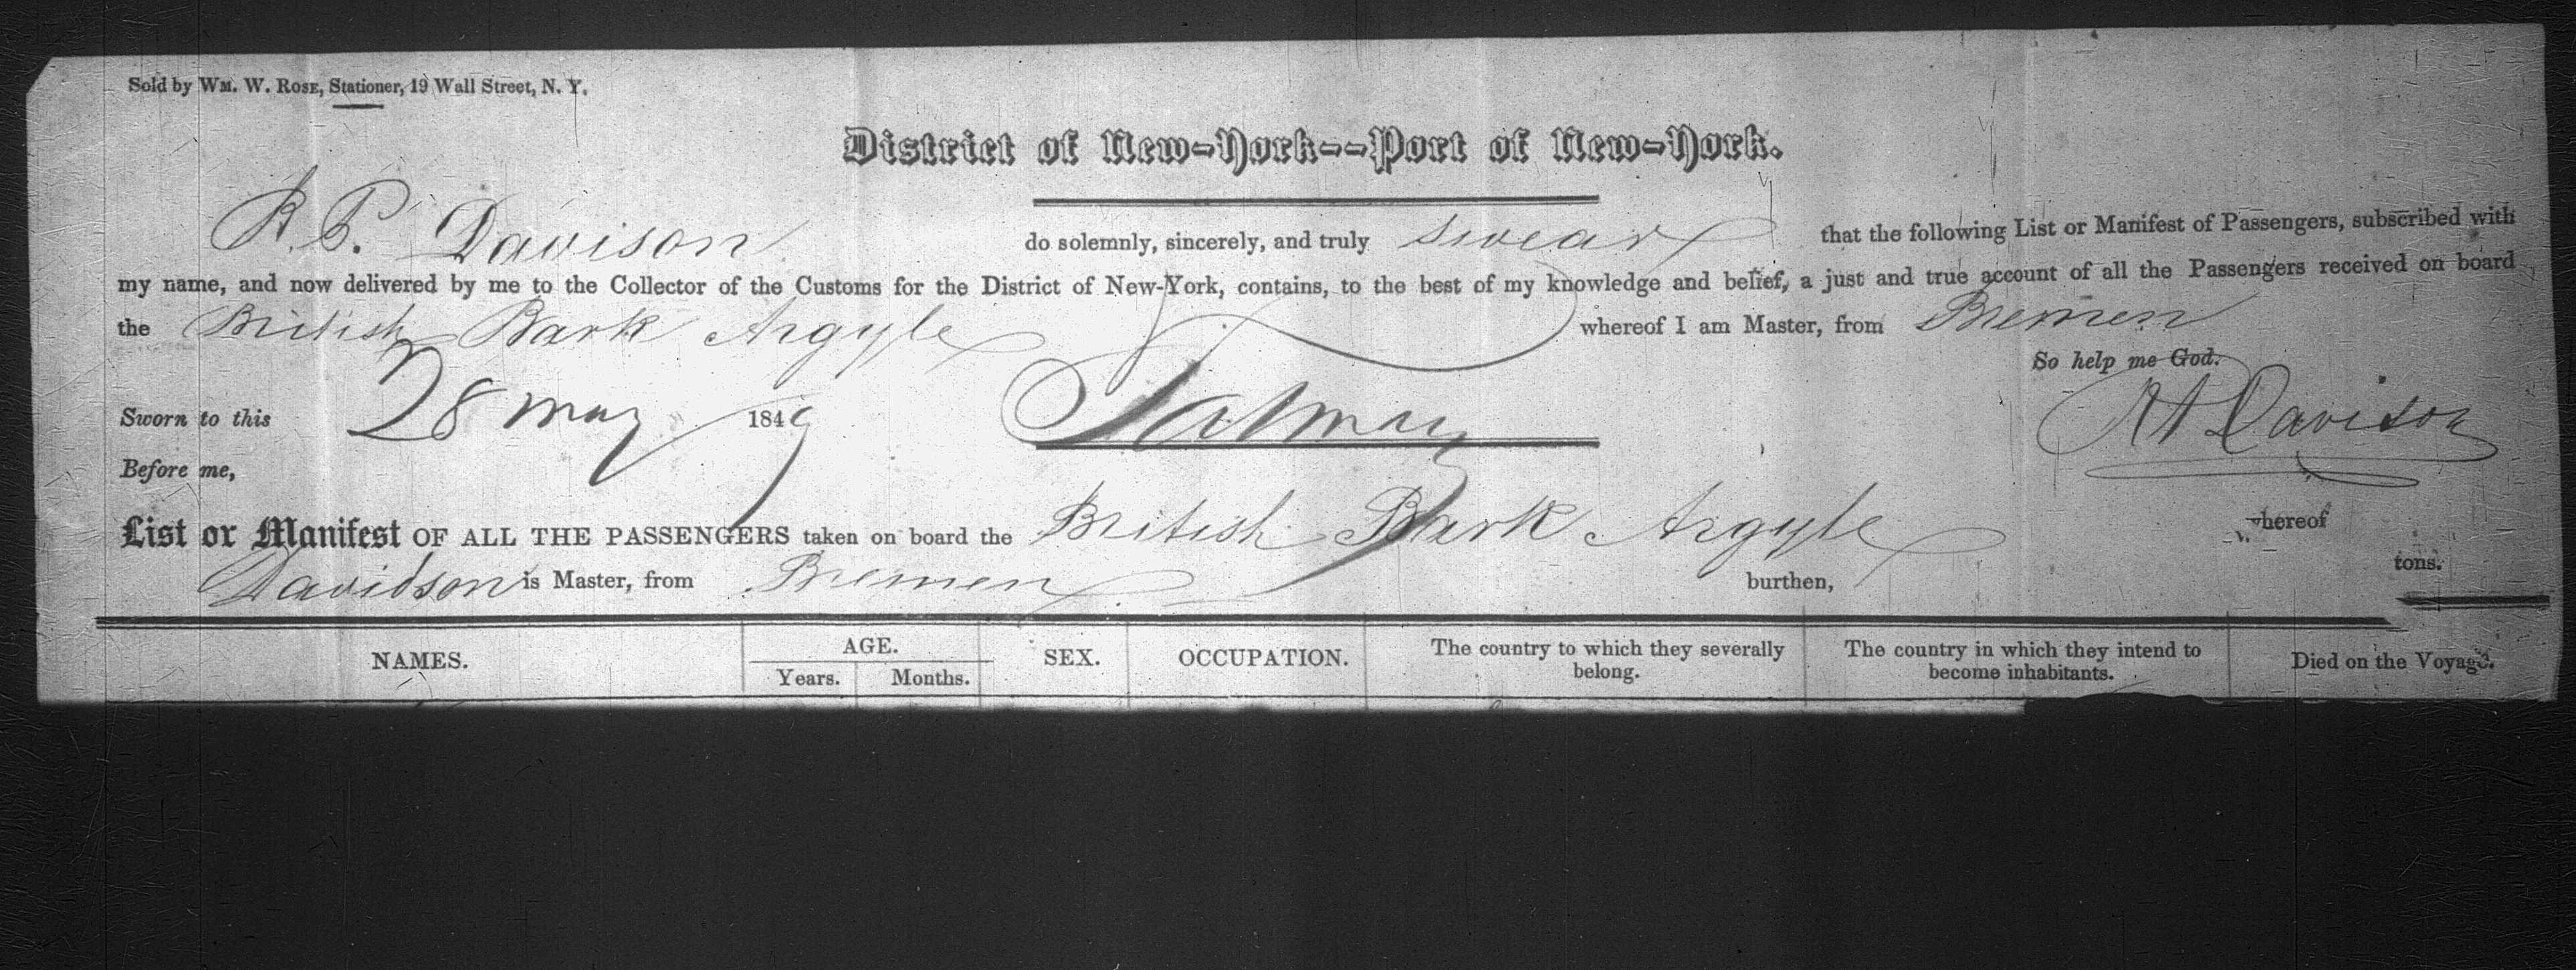 Sold by WM. W. ROSE, Stationer, 19 Wall Street, N. Y.
District of New-York--Port of New-York.
Davison do solemnly, sincerely, and truly swear that the following List or Manifest of Passengers, subscribed with
my name, and now delivered by me to the Collector of the Customs for the District of New-York, contains, to the best of my knowledge and belief, a just and true account of all the Passengers received on board
the British Bark Argyle whereof I am Master, from Bremen
So help me God.
Sworn to this 28 May 1849 Davison
Before me,
List or Manifest OF ALL THE PASSENGERS taken on board the British Bark Argyle whereof
Davidson is Master, from Bremen burthen, tons.
NAMES. AGE. SEX. OCCUPATION. The country to which they severally belong. The country in which they intend to become inhabitants. Died on the Voyage.
Years. Months.